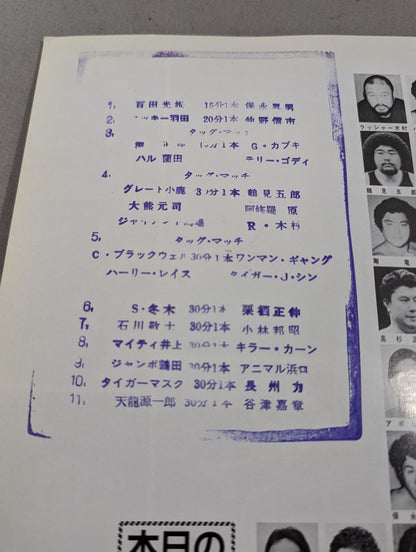 1, 百田光雄 15分1本 保永昇男
2, ロッキー羽田 20分1本 仲野信市
3, タッグ・マッチ
30分1本 G・カブキ
ハル 薗田 テリー・ゴディ
4, タッグ・マッチ
グレート小鹿 30分1本 鶴見五郎
大熊元司 阿修羅 原
ジャイアント馬場 R・木村
5, タッグ・マッチ
C・ブラックウェル 30分1本 ワンマン・ギャング
ハーリー・レイス タイガー・J・シン
6, S・冬木 30分1本 栗栖正伸
7, 石川敬士 30分1本 小林邦昭
8, マイティ井上 30分1本 キラー・カーン
9, ジャンボ鶴田 30分1本 アニマル浜口
10, タイガーマスク 30分1本 長州 力
11, 天龍源一郎 30分1本 谷津嘉章
ラッシャー木村
鶴見五郎
高杉正
保永
本日の